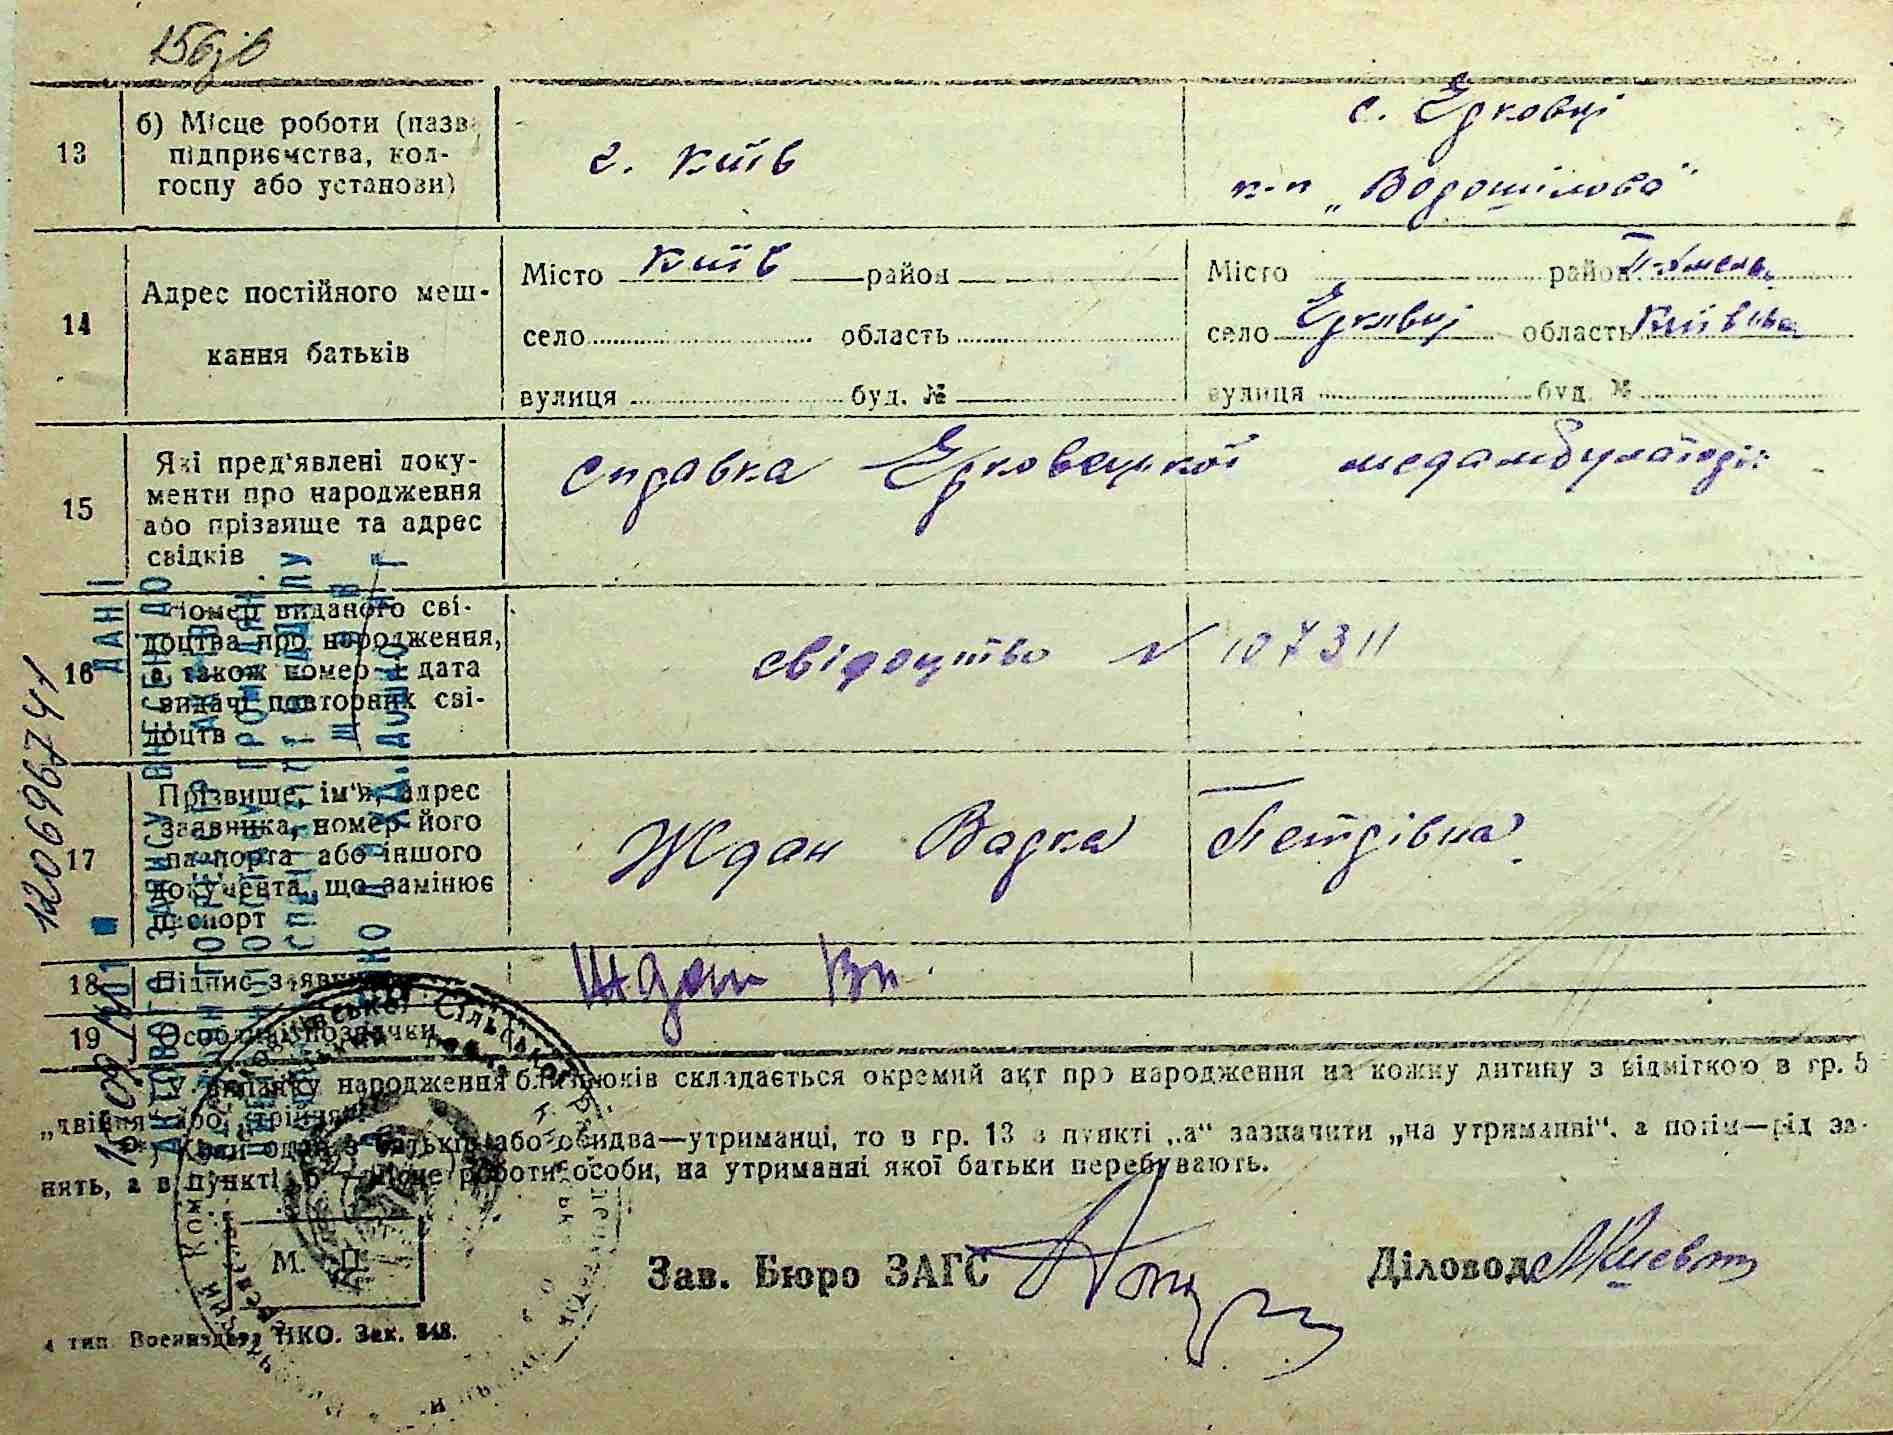 13
б) Місце роботи (назв
підприємства, кол-
госпу або установи)
г. Київ
с. Ерковці
к-п „Ворошілова"
14
Адрес постійного меш-
кання батьків
Місто Київ район
село область
вулиця буд. №
Місто район П-Хмель.
село Ерковці область Київська
вулиця буд. №
15
Які пред'явлені доку-
менти про народження
або прізвище та адрес
свідків
справка Ерковецької медамбулаторії
16
Номер виданого сві-
доцтва про народження,
а також номер і дата
видачі повторних сві-
доцтв
свідоцтво № 107311
17
Прізвище, ім'я, адрес
заявника, номер його
паспорта або іншого
документа, що замінює
паспорт
Ждан Варка Петрівна
18
Підпис заявника
Ждан Вп.
19
Особливі позначки
У випадку народження близнюків складається окремий акт про народження на кожну дитину з відміткою в гр. 5
„двійня" або „трійня".
*) Коли один з батьків або обидва—утриманці, то в гр. 13 в пункті „а" зазначити „на утриманні", а потім—рід за-
нять, а в пункті „б"—місце роботи особи, на утриманні якої батьки перебувають.
М. П.
Зав. Бюро ЗАГС
Діловод
4 тип. Воениздата НКО. Зак. 848.
120696741